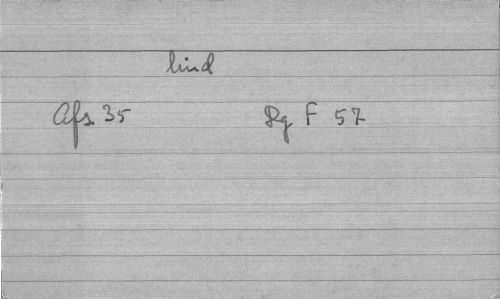 lind
Afs 35 Rg F 57